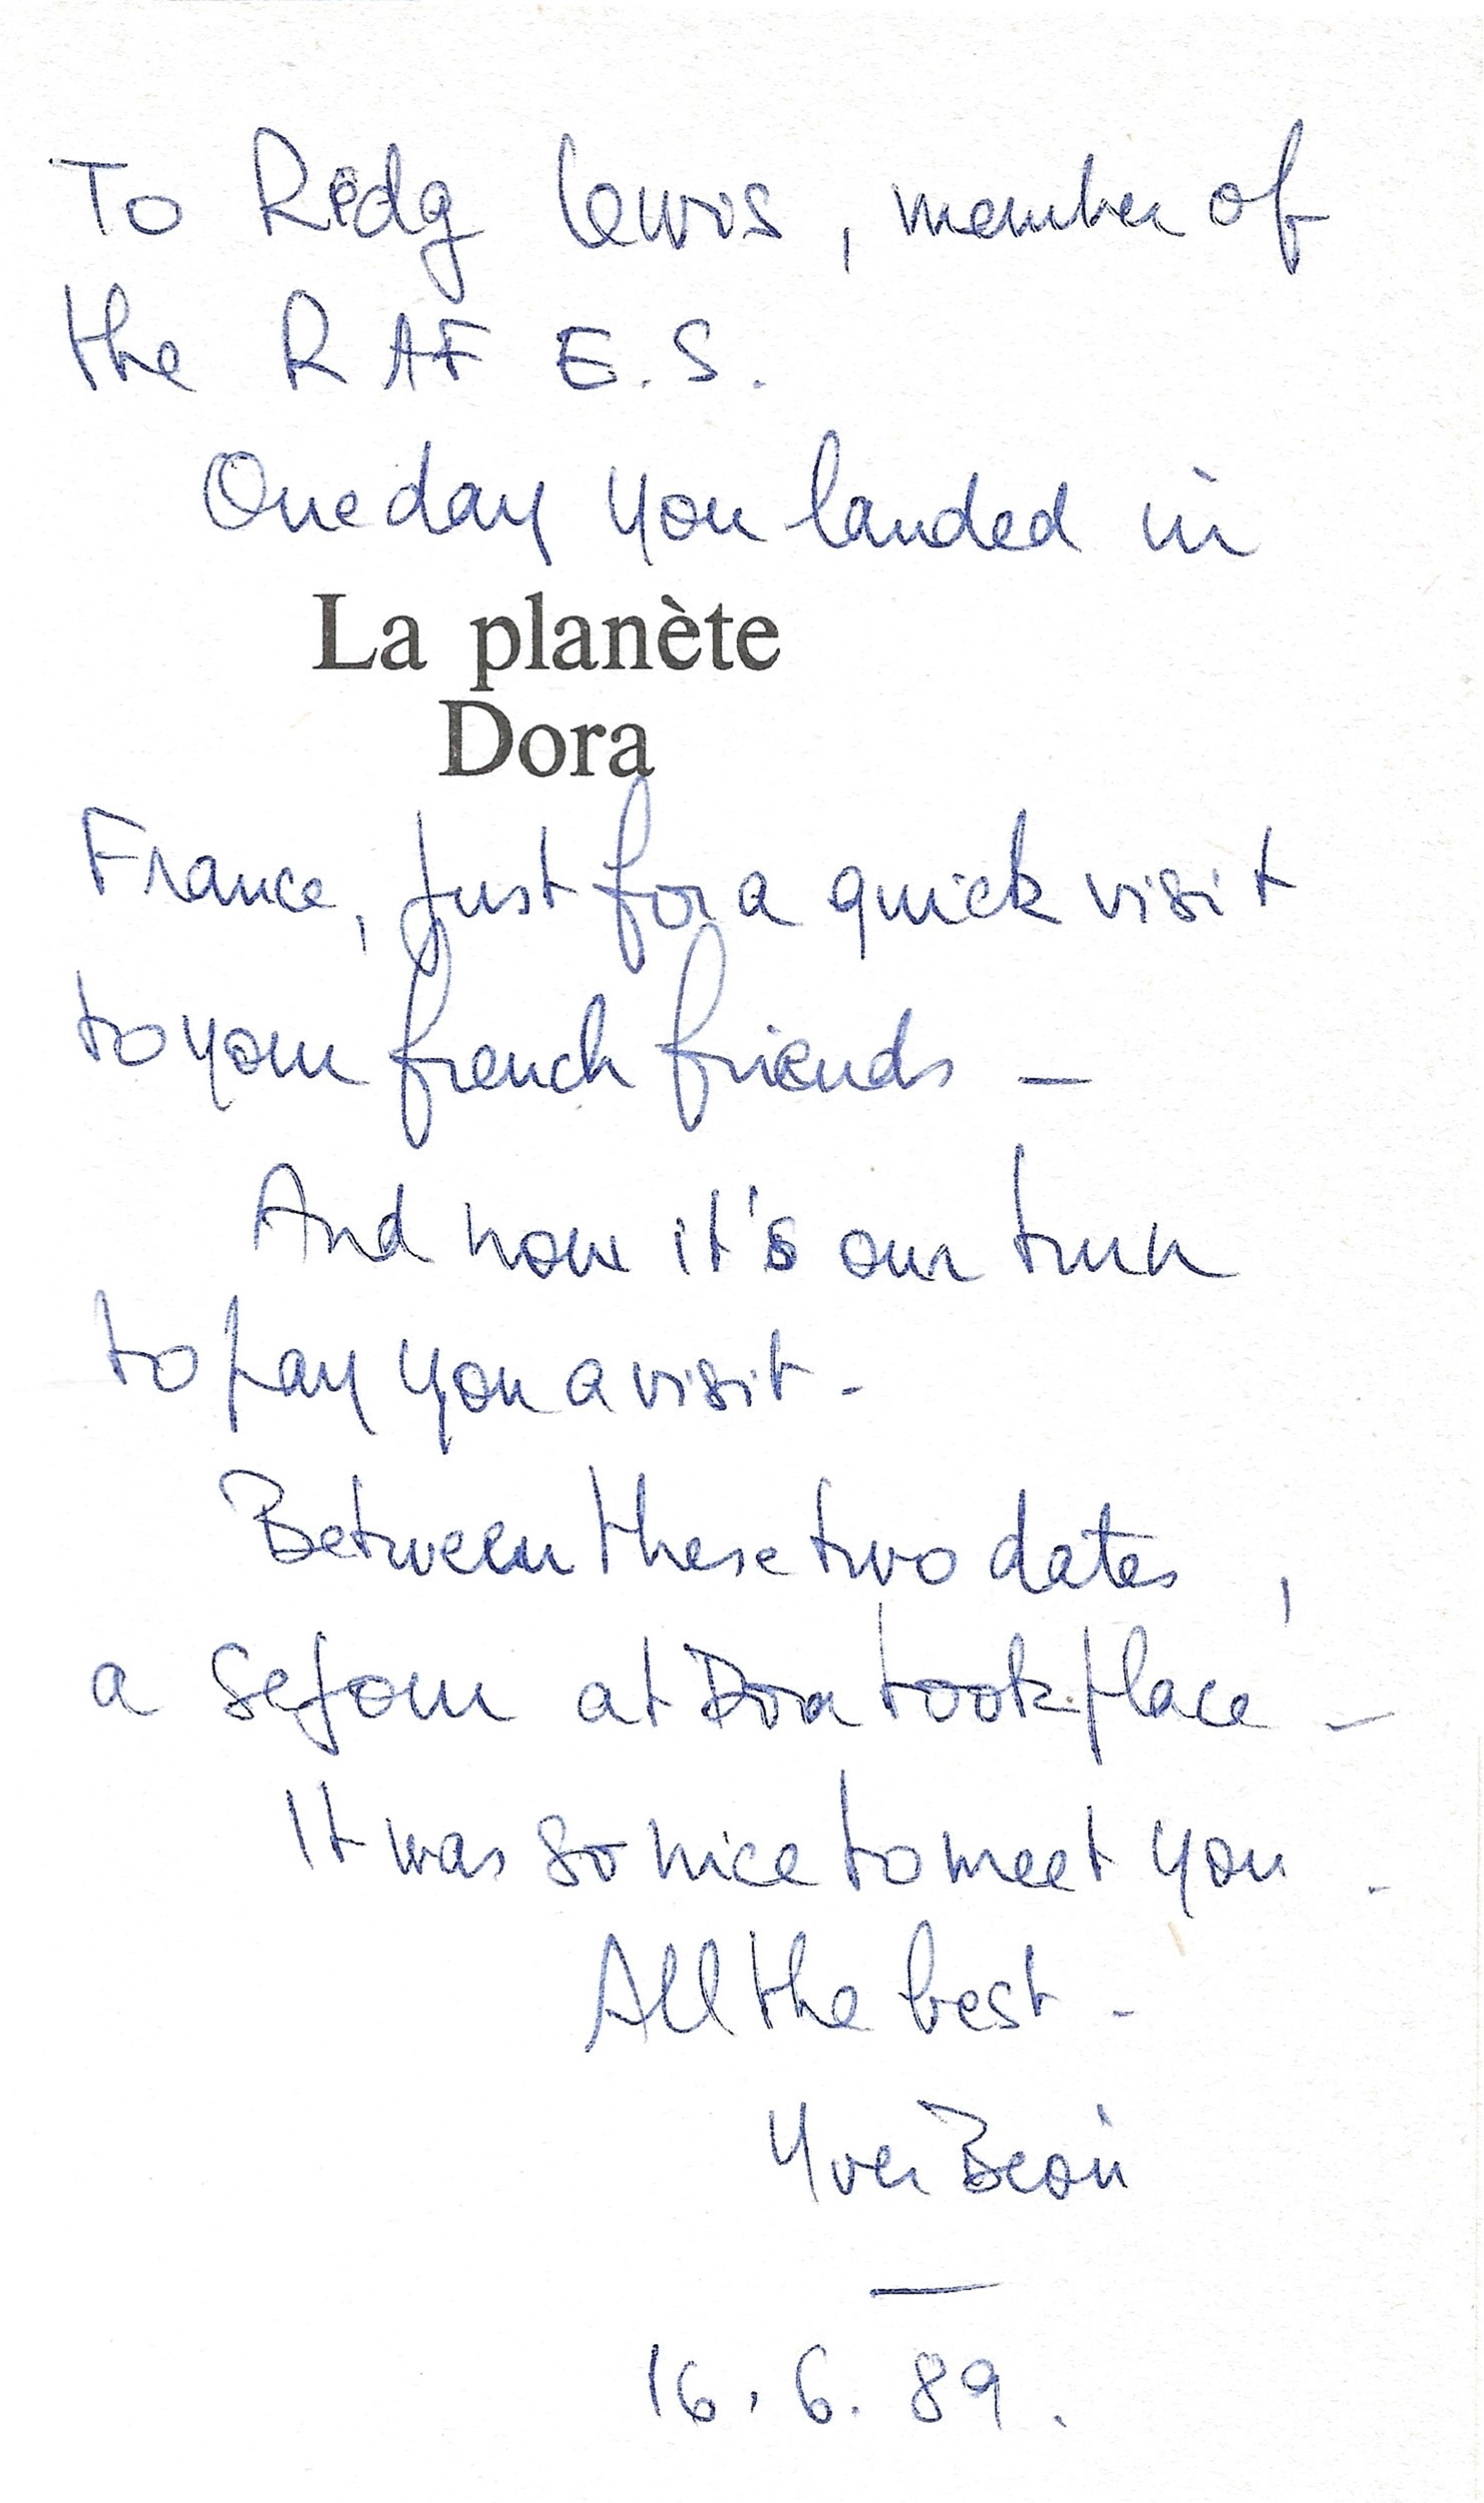 To Ridg Lewis, member of
the RAF E.S.
One day you landed in
La planète
Dora
France, just for a quick visit
to your french friends –
And now it's our turn
to pay you a visit -
Between these two dates,
a sejour at Dora took place –
It was so nice to meet you -
All the best -
Yves Béon
16.6.89.